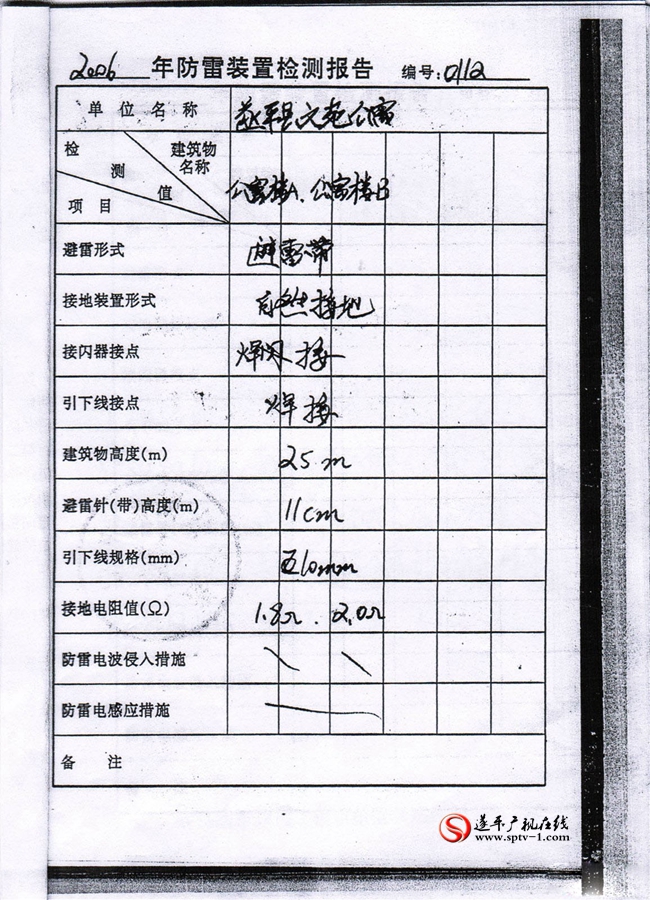 2006 年防雷装置检测报告 编号:0112
单位名称 遂平县文苑公寓
检测值 建筑物名称 项目
公寓楼A、公寓楼B
避雷形式 避雷带
接地装置形式 自然接地
接闪器接点 焊接
引下线接点 焊接
建筑物高度(m) 25m
避雷针(带)高度(m) 11cm
引下线规格(mm) 10mm
接地电阻值(Ω) 1.8Ω、2.0Ω
防雷电波侵入措施
防雷电感应措施
备注
遂平广视在线
www.sptv-1.com